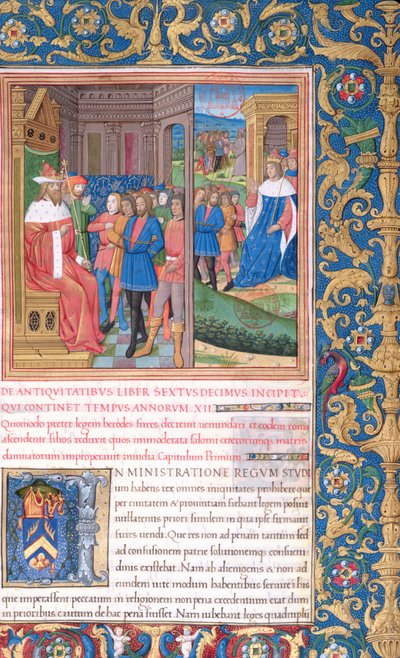 DE ANTIQVITATIBVS LIBER SEXTVS DECIMVS INCIPIT
QVI CONTINET TEMPVS ANNORVM XII
Quomodo preter legem herodes fures decreuit uenundari et eodem roma
ascendente filios reduxit quos immoderata salomi ceterorumque matris
damnatorum improperant inuidia. Capitulum Primum
IN MINISTRATIONE REGVM STVDI
um habens rex omnes iniquitates prohibere que
per ciuitatem & prouintiam fiebant legem posuit
nullatenus priori similem in qua ipse
sures uendi. Que res non ad penam tantum sed
ad confusionem patrie solutionemque consuetu
dinis existebat. Nam ab alienigenis & non ad
eundem uite modum habentibus seruire his
que imperassent peccatum in religionem non pena excedentium erat. dum
in prioribus cautum de hac pena fuisset. Nam iubebant leges quadruplu